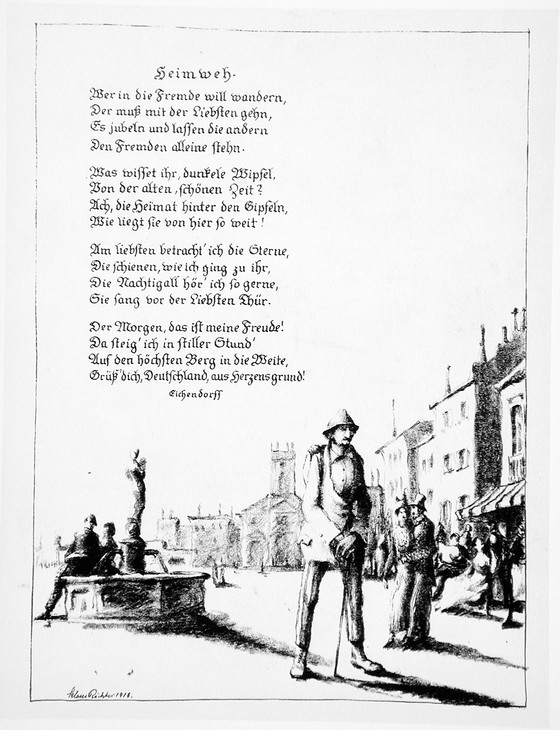 Heimweh.
Wer in die Fremde will wandern,
Der muß mit der Liebsten gehn,
Es jubeln und lassen die andern
Den Fremden alleine stehn.
Was wisset ihr, dunkele Wipfel,
Von der alten, schönen Zeit?
Ach, die Heimat hinter den Gipfeln,
Wie liegt sie von hier so weit!
Am liebsten betracht' ich die Sterne,
Die schienen, wie ich ging zu ihr,
Die Nachtigall hör' ich so gerne,
Sie sang vor der Liebsten Thür.
Der Morgen, das ist meine Freude!
Da steig' ich in stiller Stund'
Auf den höchsten Berg in die Weite,
Grüß' dich, Deutschland, aus Herzensgrund!
Eichendorff
Klaus Richter 1918.